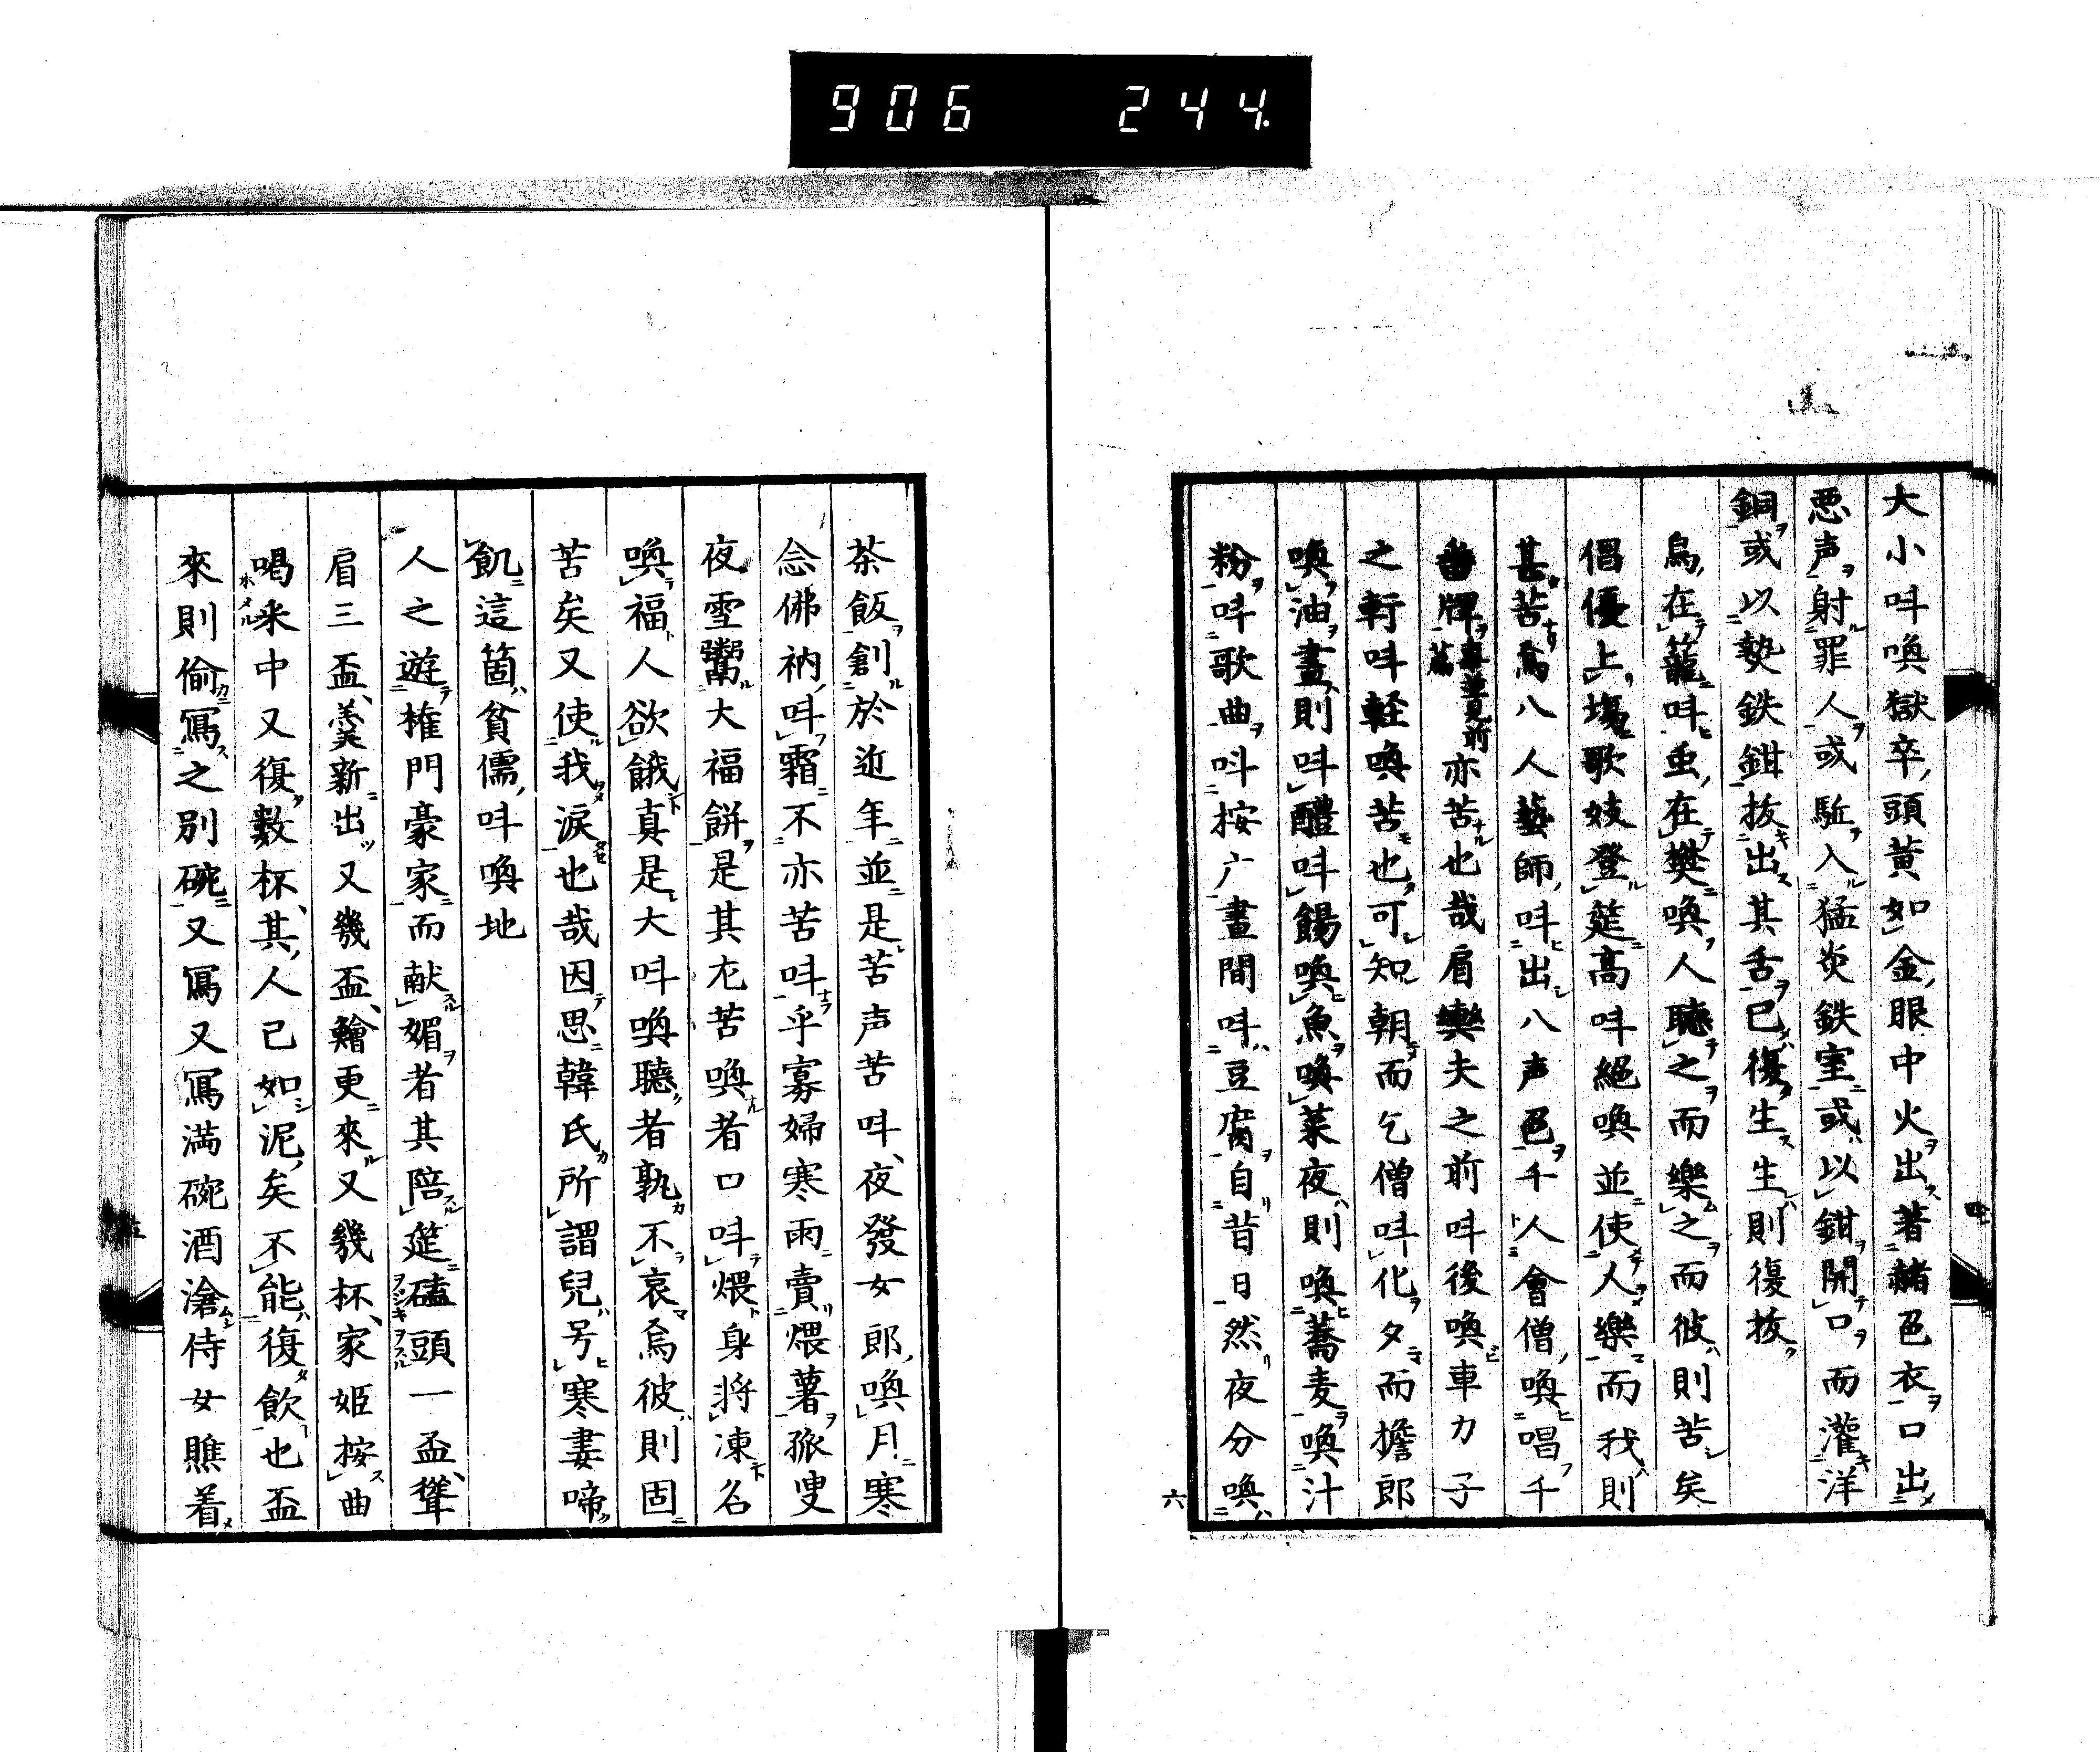 906 244.
大小叫喚獄卒頭黄如金眼中火出著赭色衣口出
悪声射罪人或駈入猛炎鉄室或以鉗開口而灌洋
銅或以熱鉄鉗抜出其舌已復生生則復抜
鳥在籠叫虫在樊喚人聴之而樂之而彼則苦矣
倡優上塲歌妓登筵高叫絕喚並使人樂而我則
甚苦為八人藝師叫出八声色千人會僧喚唱千
番牌亦苦也哉肩輿夫之前叫後喚車力子
之軒叫軽喚苦也可知朝而乞僧叫化夕而擔郎
喚油晝則叫醴叫餳喚魚喚菜夜則喚蕎麦喚汁
粉叫歌曲叫按广晝間叫豆腐自昔日然夜分喚
六
茶飯創於近年並是苦声苦叫夜發女郎喚月寒
念佛衲叫霜不亦苦叫乎寡婦寒雨賣煨薯孤叟
夜雪鬻大福餅是其尤苦喚者口叫煨身將凍名
喚福人欲餓真是大叫喚聴者孰不哀焉彼則固
苦矣又使我淚也哉因思韓氏所謂兒号寒妻啼
飢這箇貧儒叫喚地
人之遊権門豪家而献媚者其陪筵磕頭一盃聳
肩三盃羹新出又幾盃鱠更來又幾杯家姬按曲
喝来中又復数杯其人已如泥矣不能復飲也盃
來則偷寫之別碗又寫又寫満碗酒滄侍女瞧着